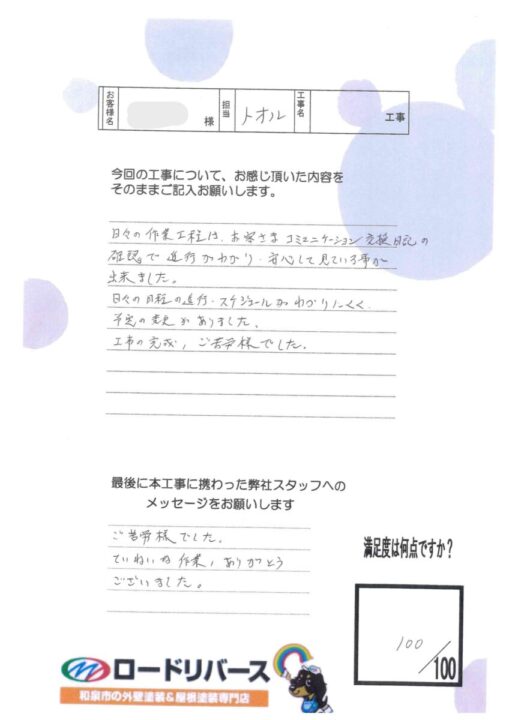 お客様名 様 担当 トオル 工事名 工事
今回の工事について、お感じ頂いた内容を
そのままご記入お願いします。
日々の作業工程は、お客さまコミュニケーション交換日記の
確認で進行がわかり、安心して見ている事が
出来ました。
日々の日程の進行・スケジュールがわかりにくく、
予定の変更がありました。
工事の完成、ご苦労様でした。
最後に本工事に携わった弊社スタッフへの
メッセージをお願いします
ご苦労様でした。
ていねいな作業、ありがとう
ございました。
満足度は何点ですか?
100/100
ロードリバース
和泉市の外壁塗装&屋根塗装専門店